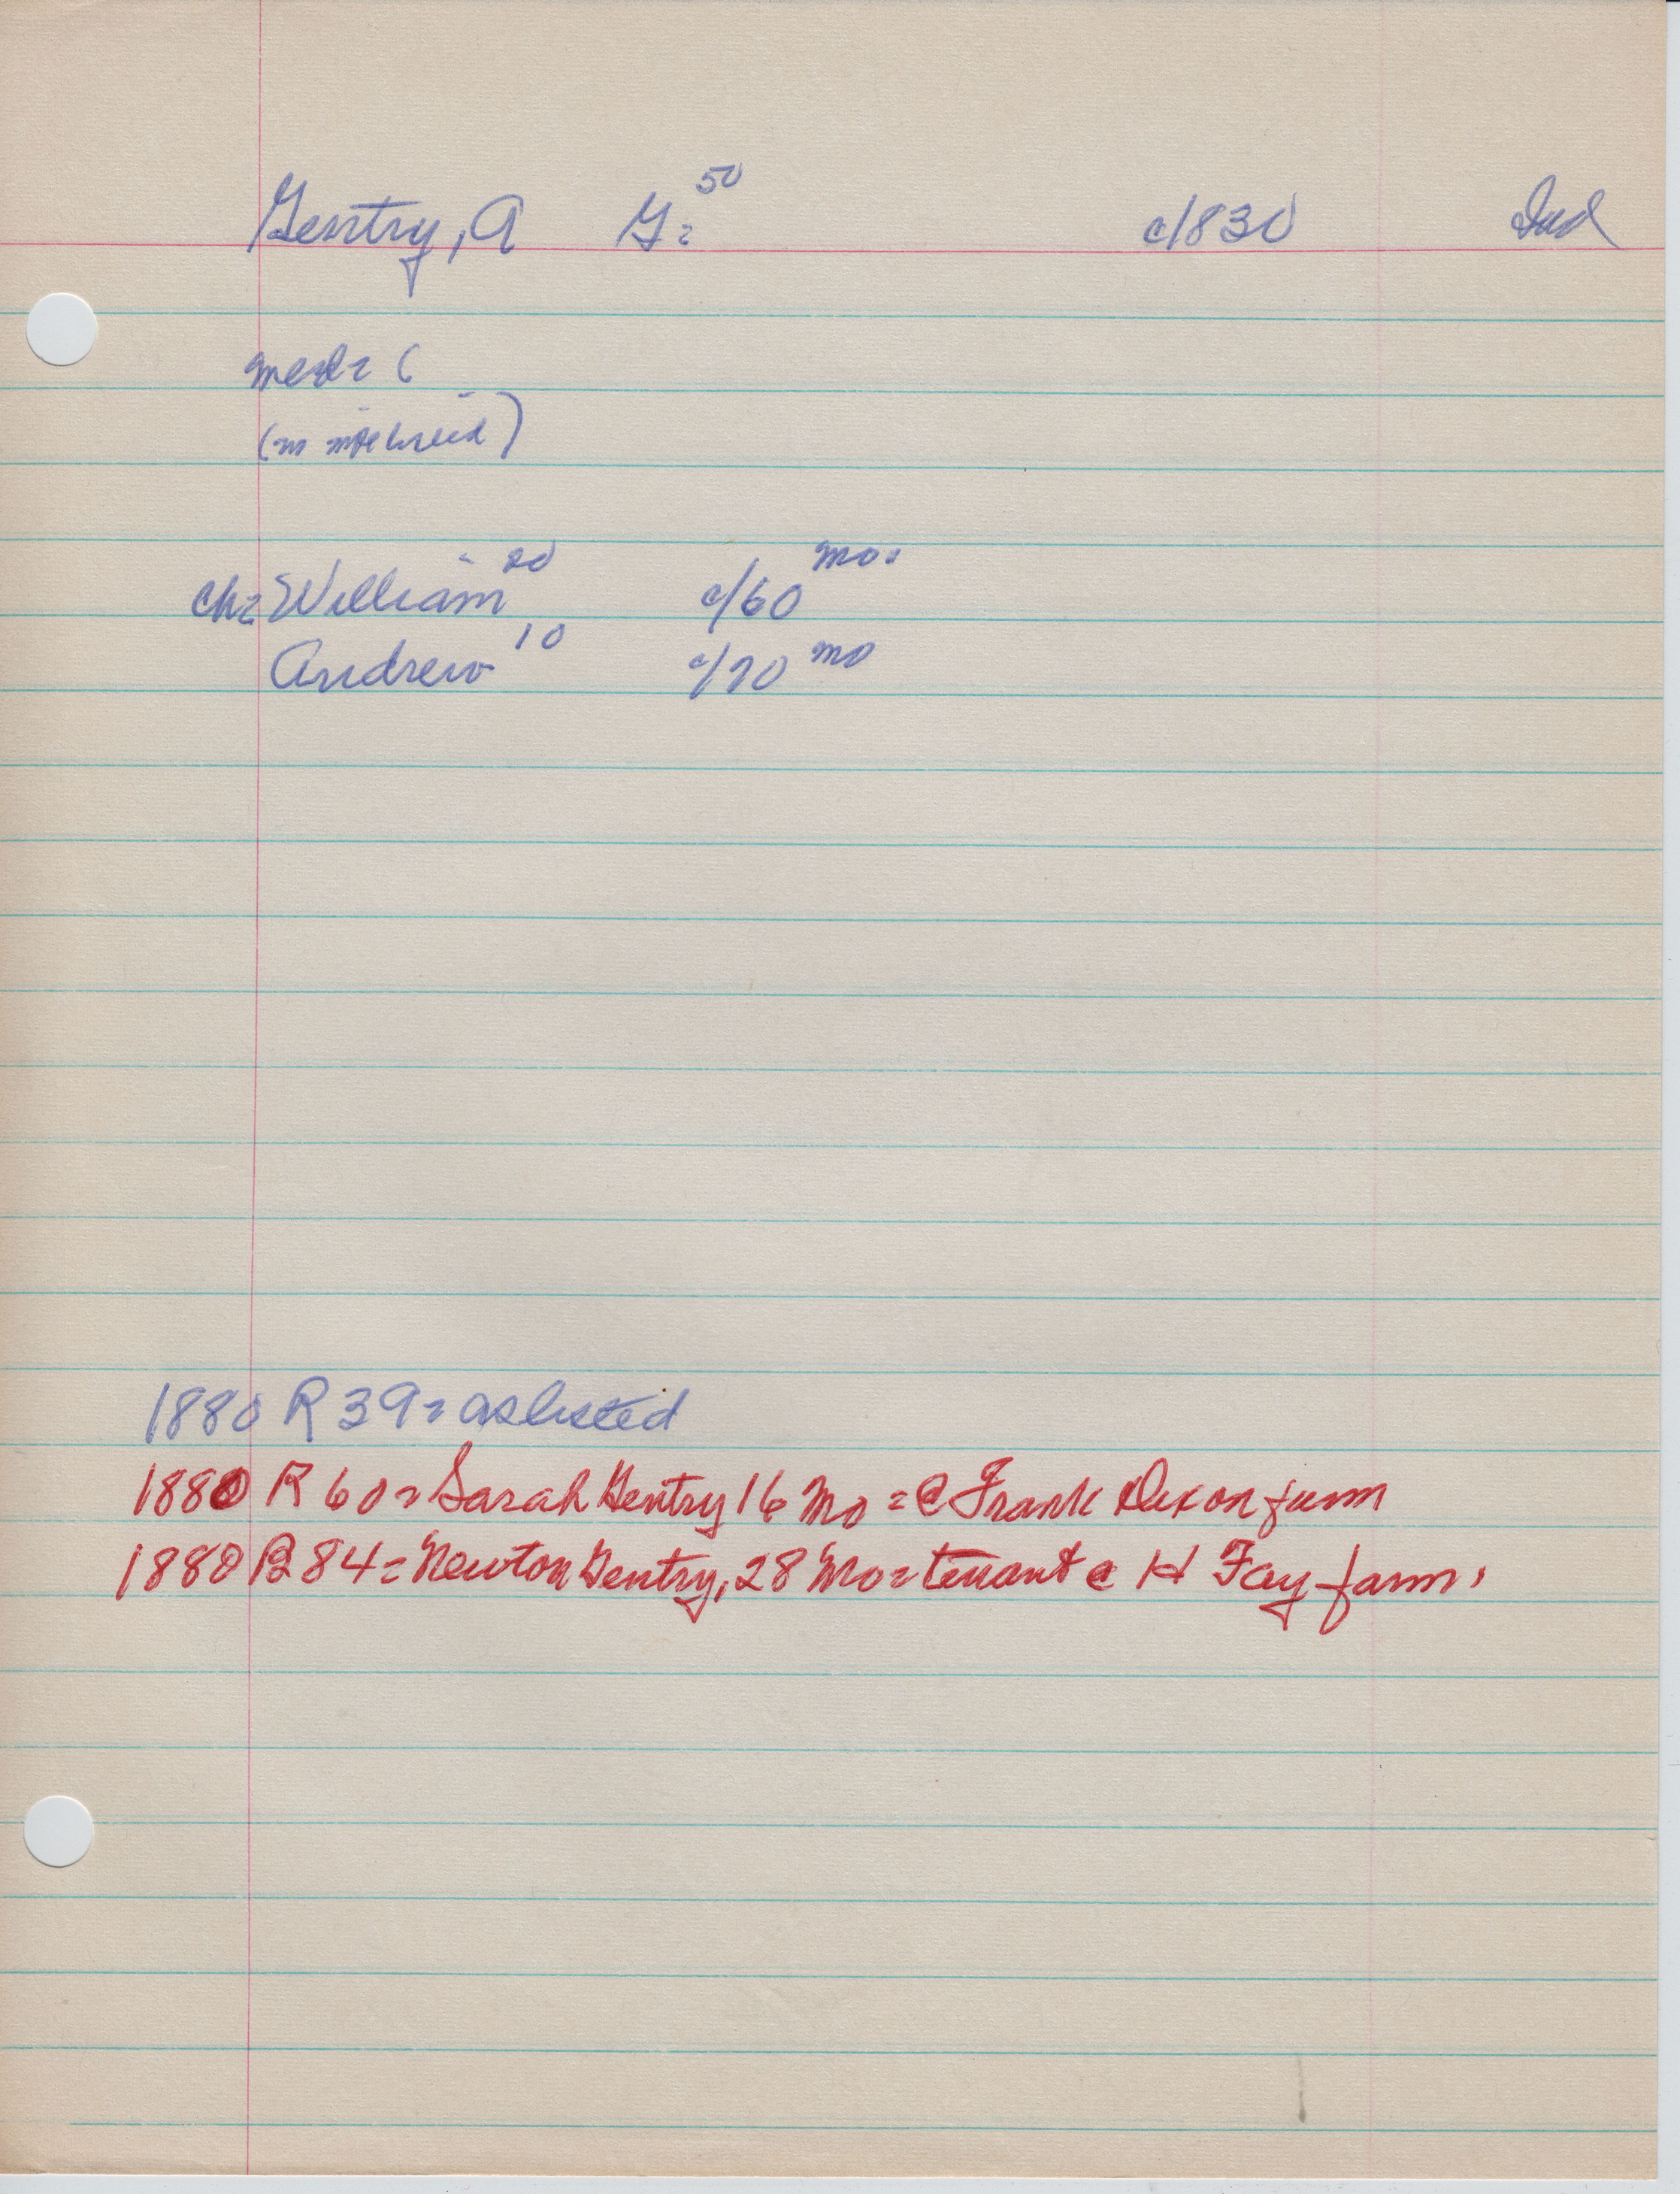 Gentry, A G= 50 c/830 Ind
(m
ch= William 20 c/60 mo.
Andrew 10 c/70 mo
1880 R 39= as listed
1880 R 60= Sarah Gentry 16 Mo = @ Frank Dixon farm
1880 R 84= Newton Gentry, 28 Mo= tenant @ H Fay farm.